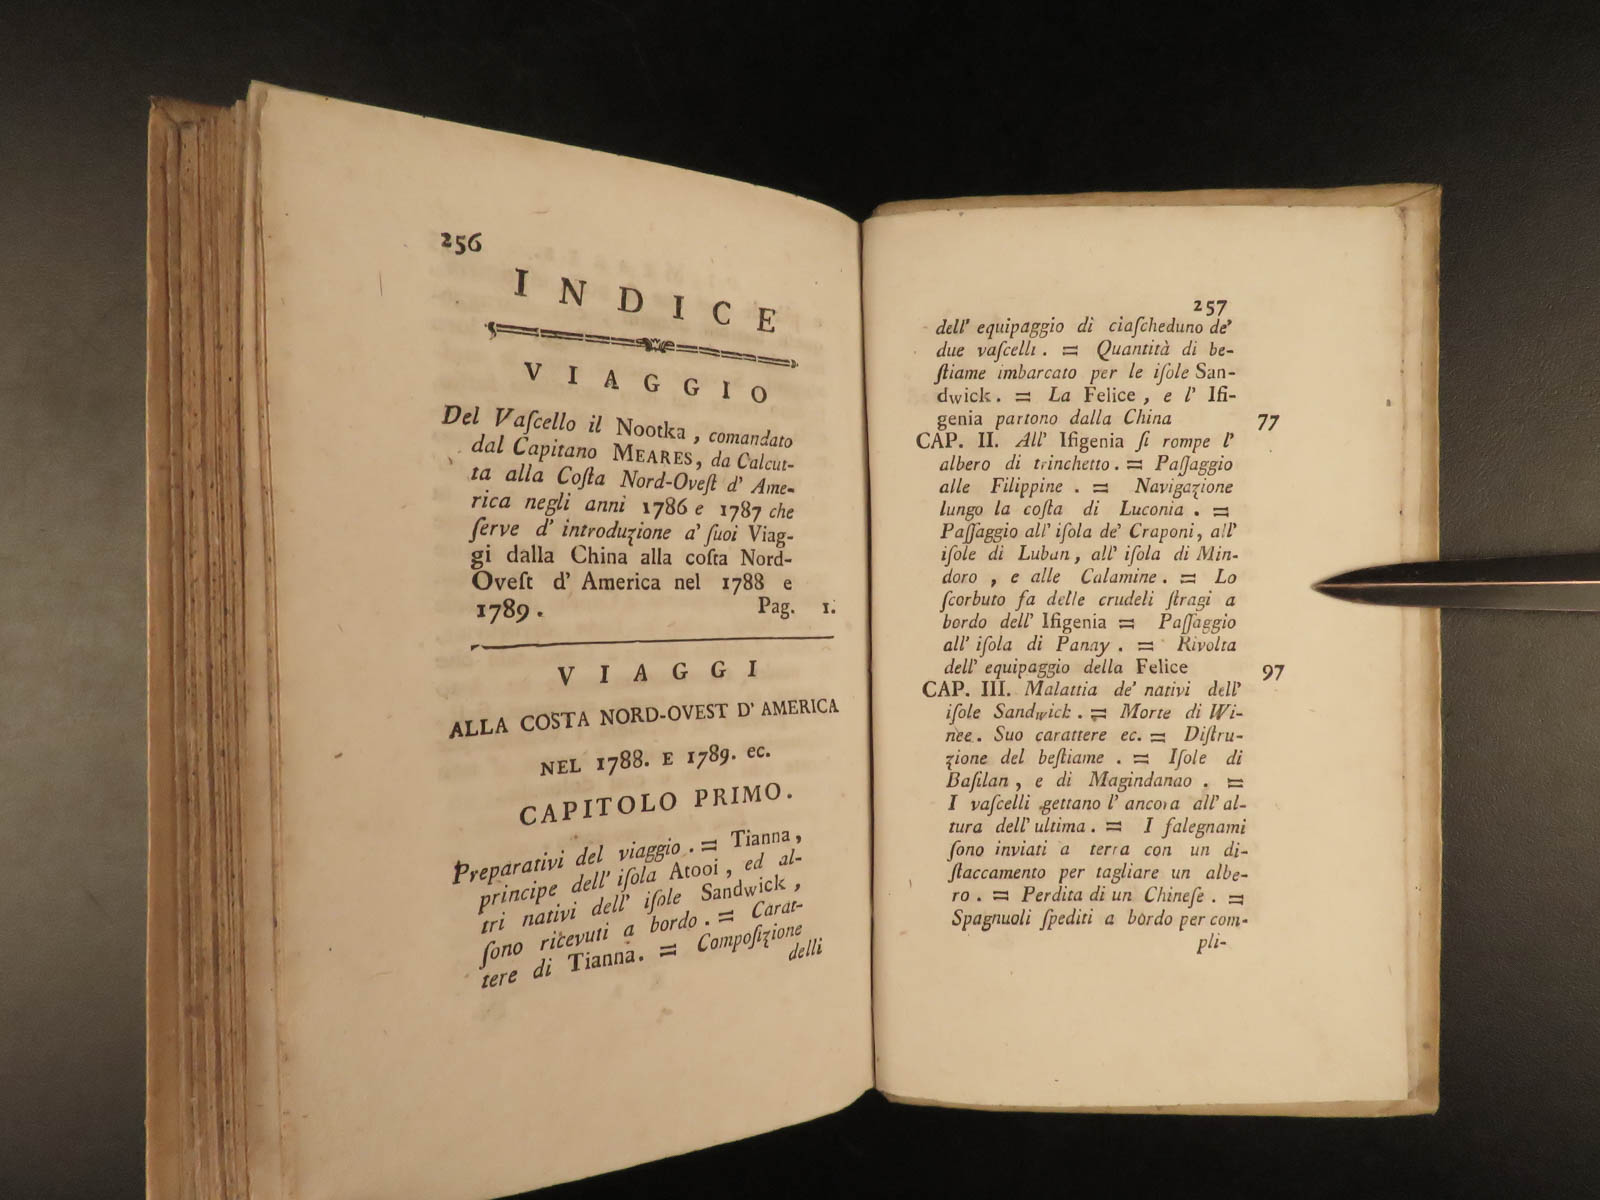 256
INDICE
VIAGGIO
Del Vaſcello il Nootka , comandato
dal Capitano MEARES, da Calcut-
ta alla Coſta Nord-Oveſt d' Ame-
rica negli anni 1786 e 1787 che
ſerve d' introduzione a' ſuoi Viag-
gi dalla China alla coſta Nord-
Oveſt d' America nel 1788 e
1789. Pag. 1.
VIAGGI
ALLA COSTA NORD-OVEST D' AMERICA
NEL 1788. E 1789. ec.
CAPITOLO PRIMO.
Preparativi del viaggio . = Tianna,
principe dell' iſola Atooi, ed al-
tri nativi dell' iſole Sandwick,
ſono ricevuti a bordo . = Carat-
tere di Tianna. = Compoſizione
delli
257
dell' equipaggio di ciaſcheduno de'
due vaſcelli . = Quantità di be-
ſtiame imbarcato per le iſole San-
dwick. = La Felice, e l' Ifi-
genia partono dalla China 77
CAP. II. All' Ifigenia ſi rompe l'
albero di trinchetto. = Paſſaggio
alle Filippine . = Navigazione
lungo la coſta di Luconia . =
Paſſaggio all' iſola de' Craponi, all'
iſole di Luban, all' iſola di Min-
doro , e alle Calamine. = Lo
ſcorbuto fa delle crudeli ſtragi a
bordo dell' Ifigenia = Paſſaggio
all' iſola di Panay . = Rivolta
dell' equipaggio della Felice 97
CAP. III. Malattia de' nativi dell'
iſole Sandwick . = Morte di Wi-
nee. Suo carattere ec. = Diſtru-
zione del beſtiame . = Iſole di
Baſilan, e di Magindanao . =
I vaſcelli gettano l' ancora all' al-
tura dell' ultima. = I falegnami
ſono inviati a terra con un di-
ſtaccamento per tagliare un albe-
ro . = Perdita di un Chineſe. =
Spagnuoli ſpediti a bordo per com-
pli-